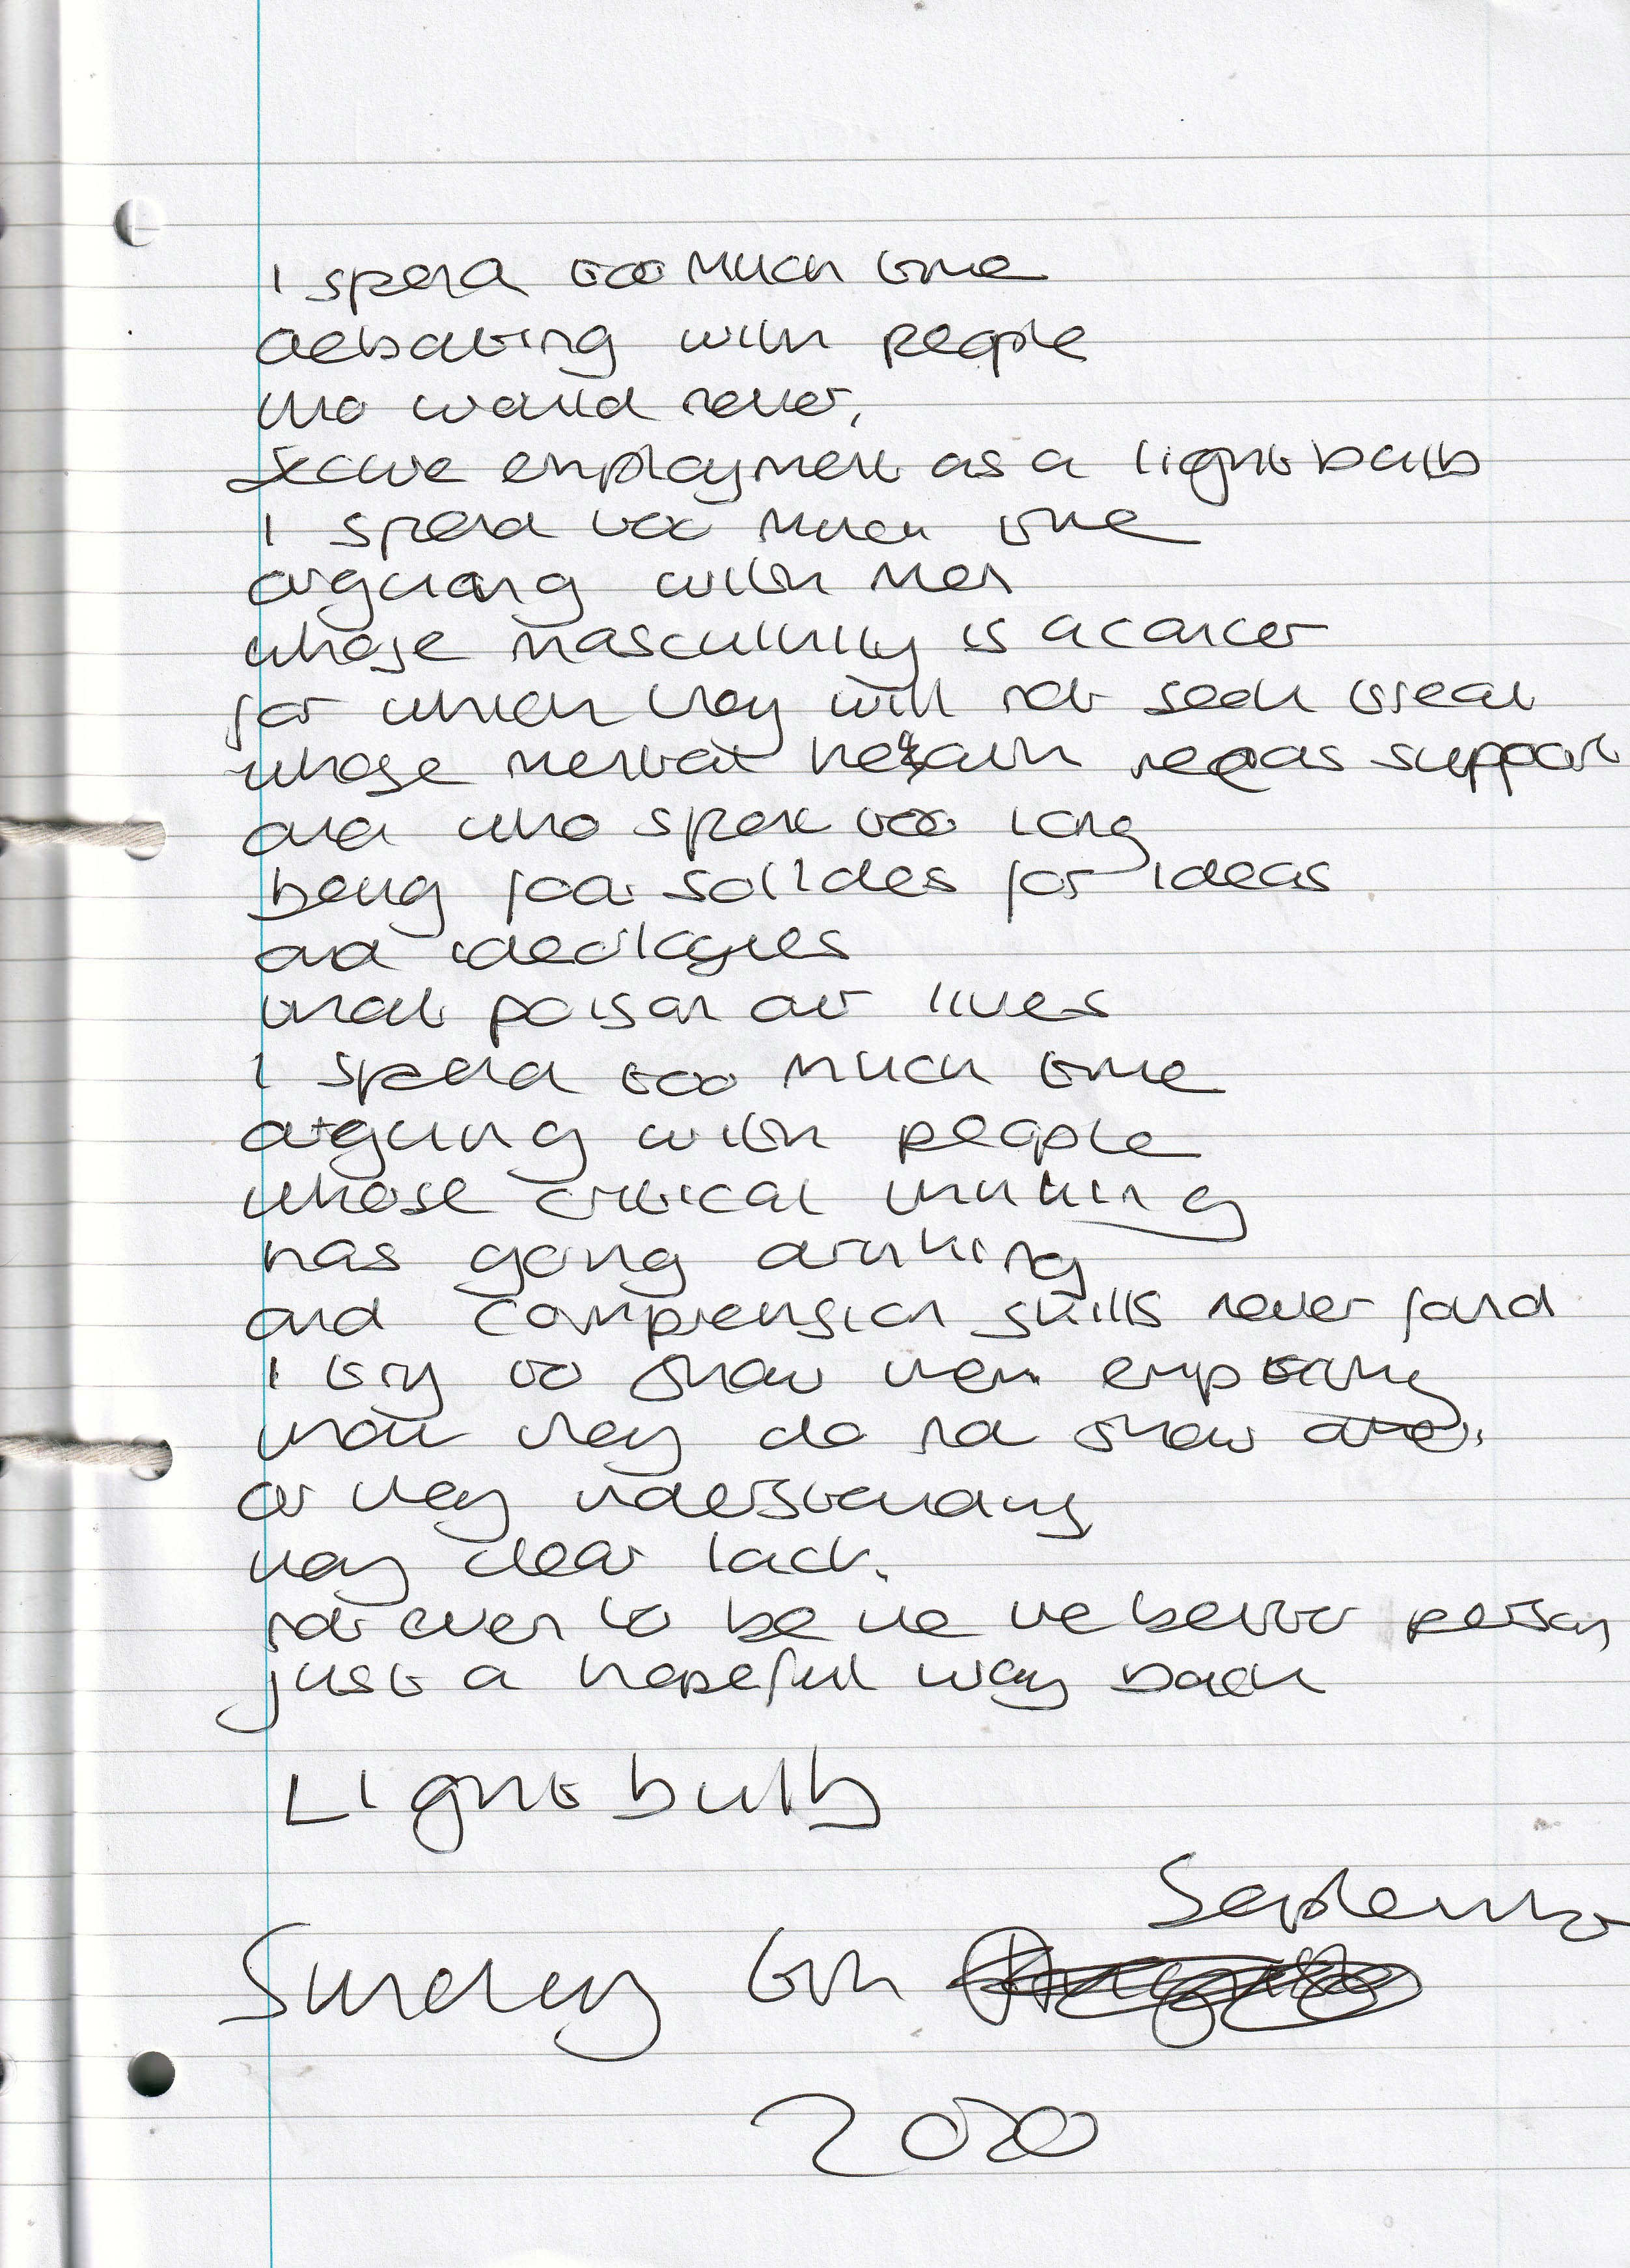 I spend too much time
debating with people
who would never,
secure employment as a light bulb
I spend too much time
arguing with men
whose masculinity is a cancer
for which they will not seek treat
whose mental health needs support
and who spent too long
being foot soilides for ideas
and ideologies
that poison our lives
I spend too much time
arguing with people
whose critical thinking
has gong drinking
and comprension skills never found
I try to show them empathy
that they do not show
or they understanding
they clear lack.
not even to be the the better person,
just a hopeful way back
Light bulb
September
Sunday 6th
2020